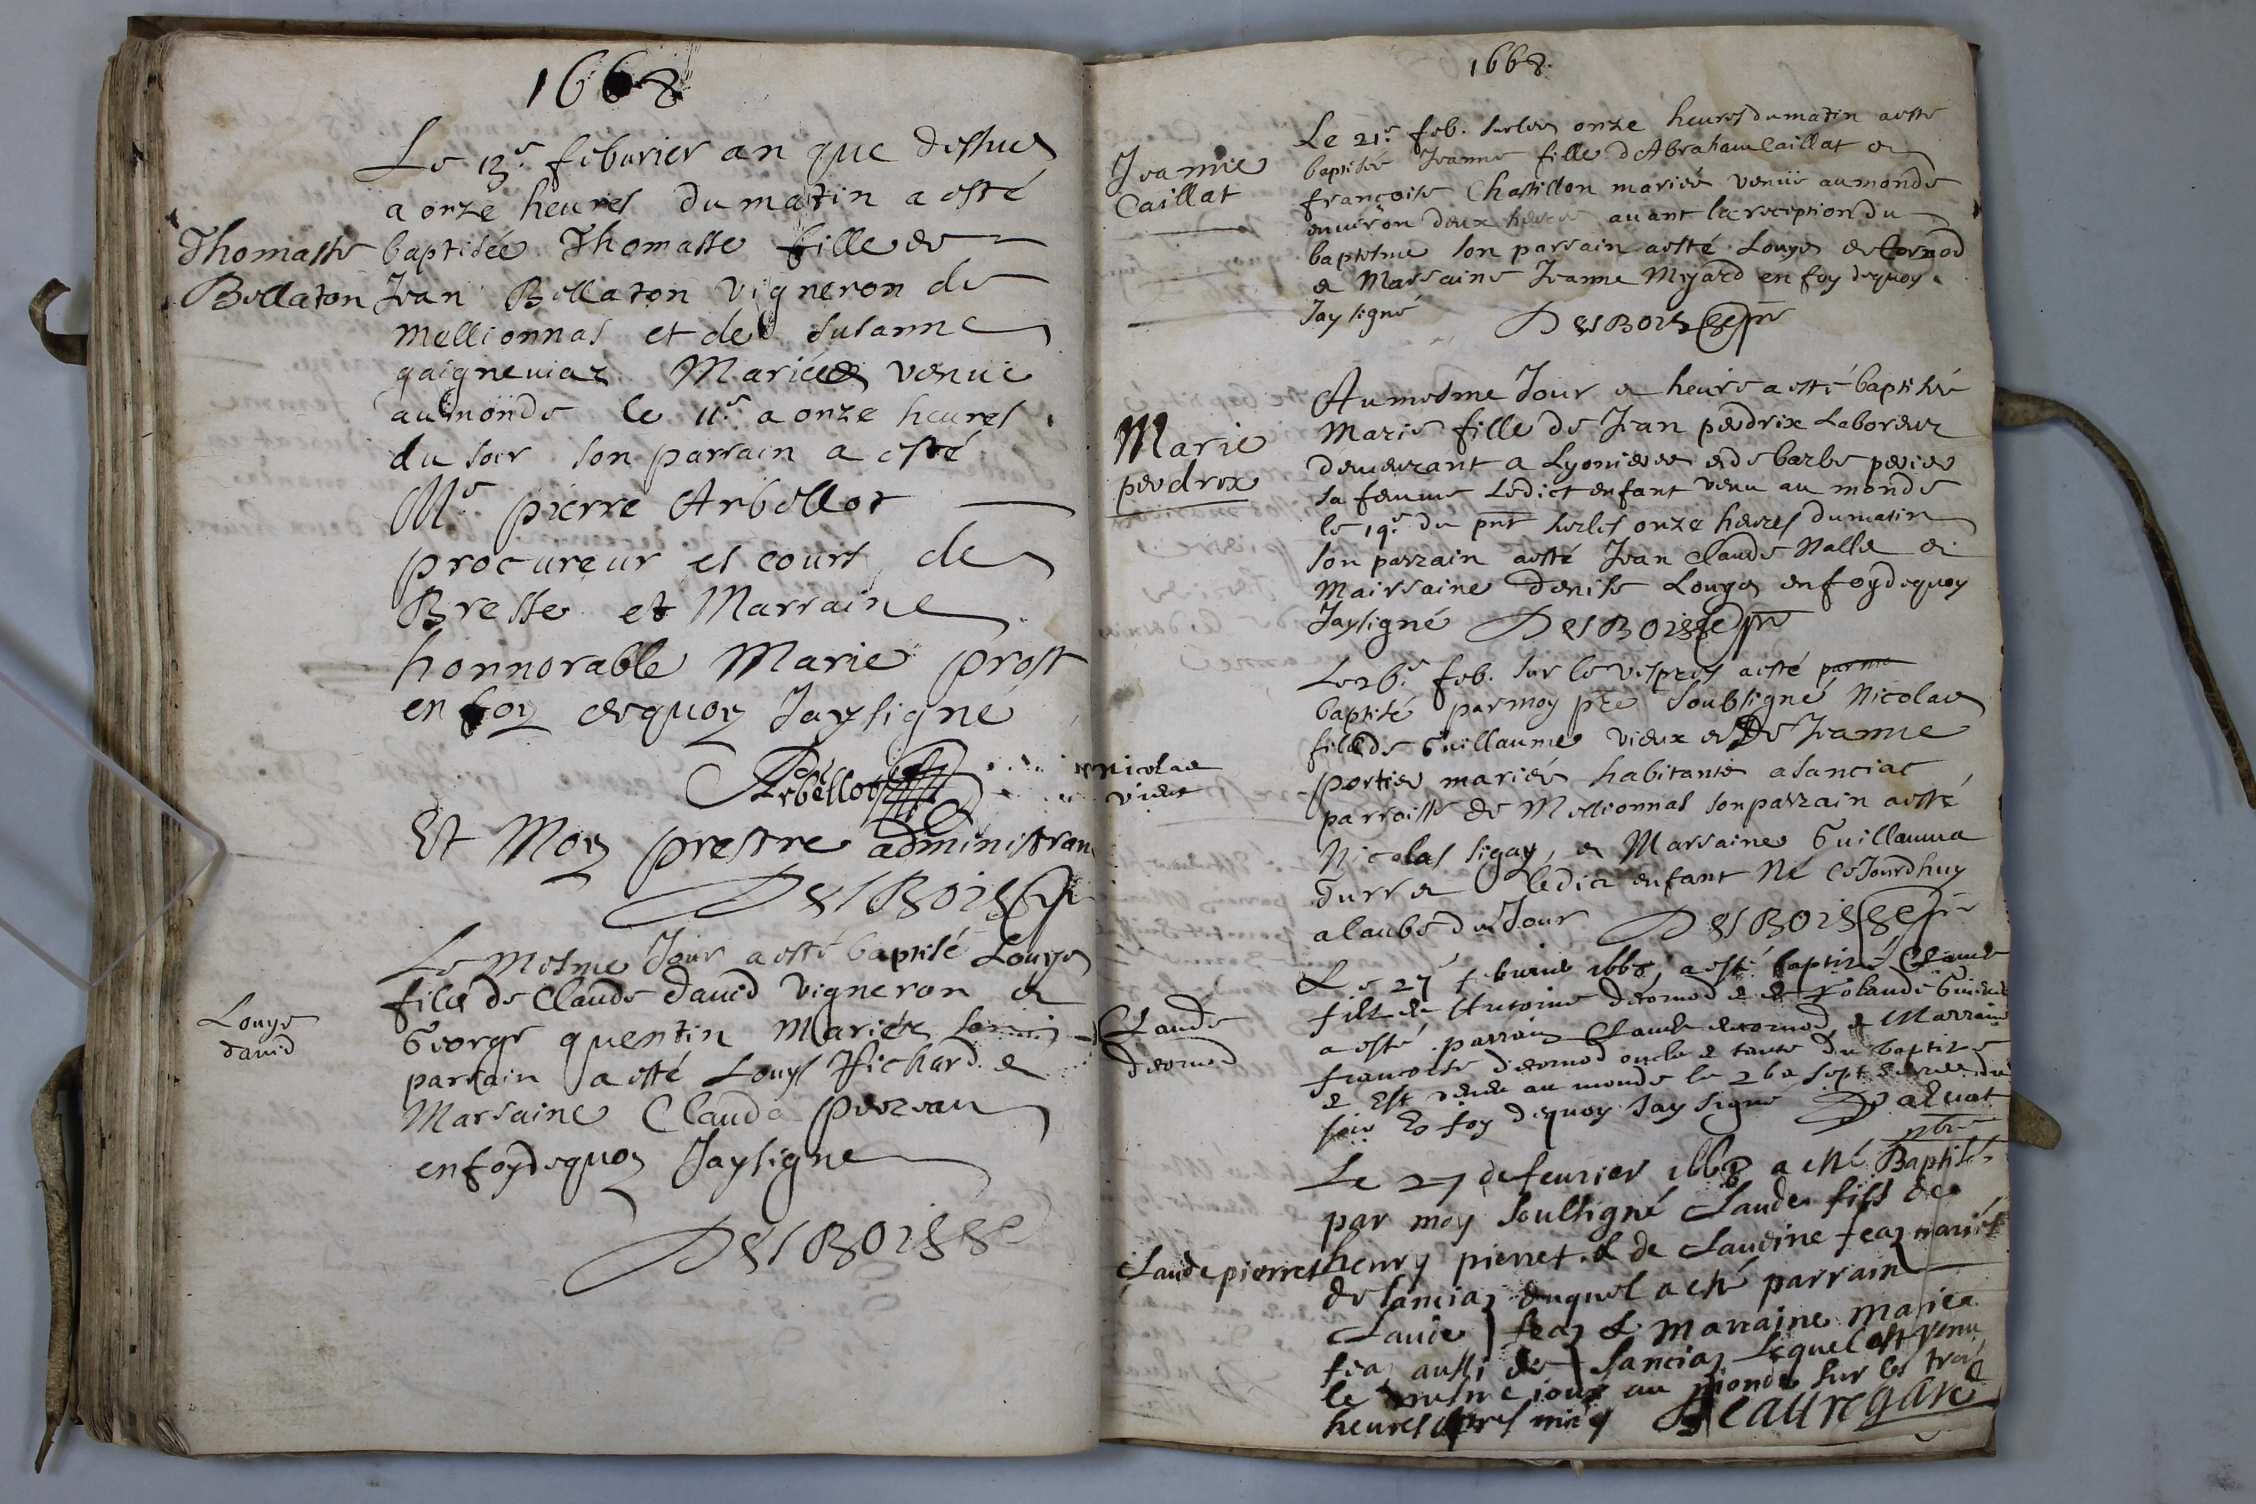 1668
Le 13e feburier an que dessus
a onze heures du matin a esté
Thomasse
Bellaton
baptisée Thomasse fille de
Jean Bellaton vigneron de
mellionnas et de Susanne
gaigneviaz Mariées venue
au monde le 11e a onze heures
du soir son parrain a esté
Me pierre Arbellot
procureur es cours de
Bresse et Marraine
honnorable Marie prost
en foy dequoy Jay signé
Arbellot
Et Moy prestre administrant
DesBoisse
Louys
david
Le mesme Jour a esté baptisé Louys
fils de Claude david vigneron et
George quentin Mariés son
parrain a esté Louys Richard et
Marraine Claude
en foy dequoy Jay signé
DesBoisse
1668.
Jeanne
Caillat
Le 21e feb. sur les onze heures du matin a esté
baptisée Jeanne fille d'Abraham Caillat et
françoise Chastillon mariés venüe au monde
environ deux heures avant la reception du
baptesme son parrain a esté Louys de Cornod
et Marraine Jeanne Myard en foy dequoy
Jay signé DesBoisse pre
Marie
perdrix
Au mesme Jour et heure a esté baptisée
Marie fille de Jean perdrix Laboreur
demeurant a Lyonieres et de barbe perier
sa femme Ledict enfant venu au monde
le 19e du pnt sur les onze heures du matin
son parrain a esté Jean Claude Nalle et
Mairraine denise Louys en foy dequoy
Jay signé DesBoisse pre
Nicolas
vieux
Le 26e feb. sur le vespres a esté par mo
baptisé par moy pre soubsigné Nicolas
fils de Guillaume vieux et de Jeanne
portier mariés habitants a Sanciat
parroisse de Mellionnas son parrain a esté
Nicolas sigay, et Marraine Guillauma
Turrel ledict enfant Né Ce Jourdhuy
a laube du Jour DesBoisse pre
Claude
decornod
Le 27e feburier 1668, a esté baptizé Claude
filz de Antoine decornod et de Rolande
a esté parrain Claude decornod, et Marraine
francoise decornod oncle et tante du baptize
et Est venu au monde le 26e sept heures du
soir En foy dequoy Jay signé
pbre
Claude pierret
Le 27 de feurier 1668 a esté Baptisé
par moy soubsigné Claude fils de
henry pierret & de Claudine feaz mariés
de sanciaz duquel a esté parrain
Claude feaz & marraine marie
feaz aussi de sanciaz Lequel est venu
le mesme jour au monde sur les trois
heures apres midy Beauregard